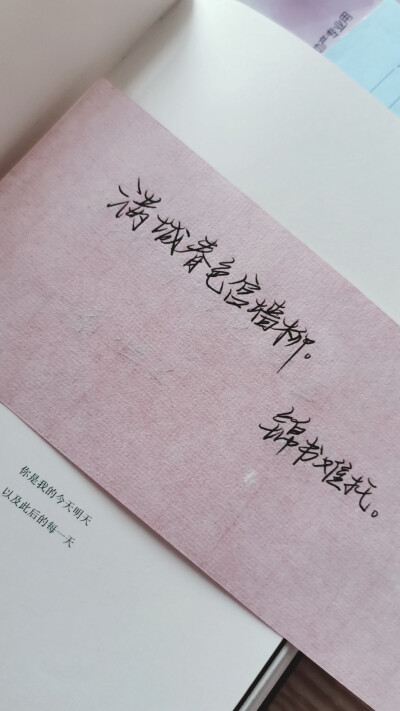 产专业用
满城春色宫墙柳。
锦书难托。
你是我的今天明天
以及此后的每一天